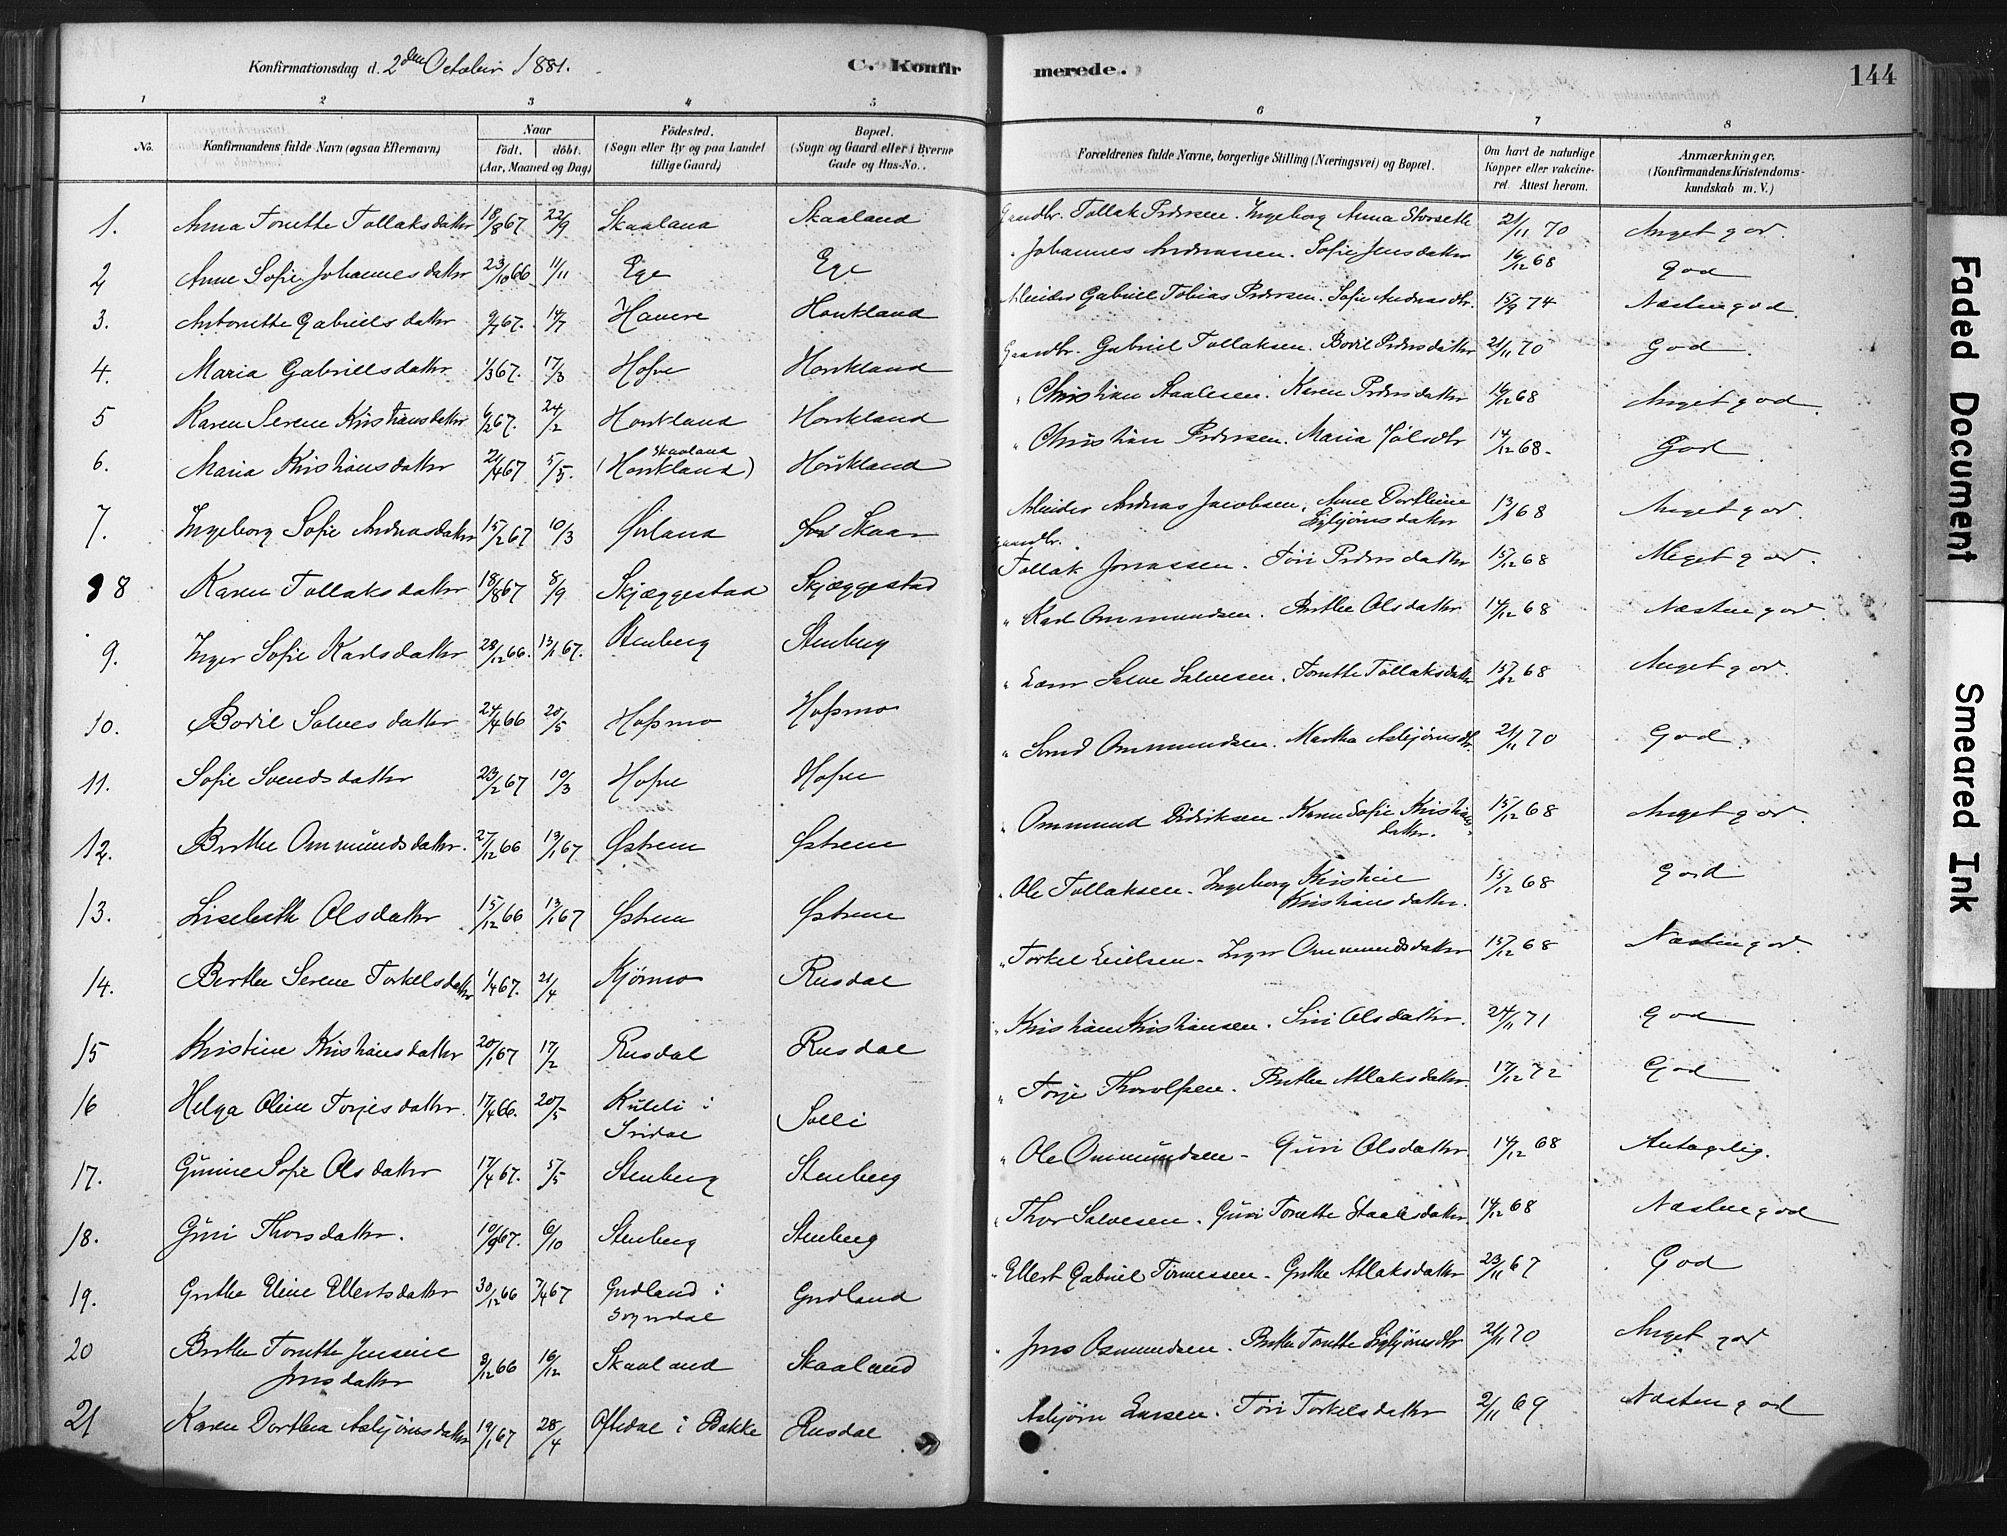 Konfirmationsdag d. 2den October 1881.
C. Konfirmerede.
144
1 2 3 4 5 6 7 8
No.
Konfirmandens fulde Navn (ogsaa Efternavn)
Naar
født. døbt.
(Aar, Maaned og Dag)
Födested.
(Sogn eller By og paa Landet
tillige Gaard)
Bopæl.
(Sogn og Gaard eller i Byerne
Gade og Hus-No.
Forældrenes fulde Navne, borgerlige Stilling (Næringsvei) og Bopæl.
Om havt de naturlige
Kopper eller vakcine-
ret. Attest herom.
Anmærkninger.
(Konfirmandens Kristendoms-
kundskab m. V.)
1. Anna Tonette Tollaksdatter 18/8 67 22/9 Skaaland Skaaland Gaardbr. Tollak Pedersen. Ingeborg Anna Storseth 21/11 70 Meget god.
2 Anne Sofie Johannesdatter 23/10 66 11/11 Ege Ege " Johannes Andreassen. Sofie Jensdatter 16/12 68 God
3. Antonette Gabrielsdatter 9/7 67. 14/7 Havere Honkland Arbeider Gabriel Tobias Pedersen. Sofie Andreasdtr. 15/9 74 Næsten god.
4. Maria Gabrielsdatter 1/3 67. 17/3 Hofve Honkland Gaardbr. Gabriel Tollaksen. Bodil Pedersdatter 21/11 70 God.
5 Karen Serene Kristiansdatter 6/2 67. 24/2 Honkland Honkland " Christian Staalesen. Karen Pedersdatter 16/12 68 Meget god.
6. Maria Kristiansdatter 21/4 67 5/5. Skaaland (Honkland) Honkland " Christian Pedersen. Maria Joelsdtr 14/12 68. God.
7. Ingeborg Sofie Andreasdatter 15/2 67 10/3 Ørland Skaar Arbeider Andreas Jacobsen, Anne Dorthine Sigbjørnsdatter 13/1 68 Meget god.
8 Karen Tollaksdatter 18/8 67 8/9 Skjæggestad Skjæggestad Gaardbr. Tollak Jonassen. Tori Pedersdatter 15/12 68 Meget god.
9. Inger Sofie Karlsdatter 28/12 66. 13/1 67. Stenberg Stenberg " Karl Ommundsen. Berthe Olsdatter 14/12 68 Næsten god.
10. Bodil Salvesdatter 24/4 66 20/5 Hofsmo Hofsmo " Salve Salvesen. Tonette Tollaksdatter 15/12 68 Meget god.
11. Sofie Svendsdatter 23/2 67 10/3 Hofve Hofve " Svend Ommundsen. Martha Asbjørnsdtr. 21/11 70 God.
12. Berthe Ommundsdatter. 27/12 66 13/1 67 Østrem Østrem " Ommund Didriksen. Karen Sofie Kristiansdatter. 15/12 68 Meget god.
13. Lisebeth Olsdatter 15/12 66 13/1 67 Østrem Østrem " Ole Tollaksen. Ingeborg Kristine Kristiansdatter. 15/12 68 God
14. Berthe Serene Torkelsdatter 1/4 67. 21/4 Kjørmo Rusdal " Torkel Eielsen. Inger Ommundsdatter 15/12 68 Næsten god.
15 Kristine Kristiansdatter 20/1 67 17/2 Rusdal Rusdal " Kristian Kristiansen. Siri Olsdatter. 24/11 71 God
16 Helga Oline Torjesdatter. 17/4 66. 20/5 i Siridal Solli " Torje Thorolfsen. Berthe Atlaksdatter. 17/12 72 God
17. Gunine Sofie Olsdatter 17/4 67. 5/5 Stenberg Stenberg " Ole Ommundsen - Guri Olsdatter 14/12 68 Antagelig.
18. Guri Thorsdatter. 19/9 67. 6/10 Stenberg Stenberg " Thor Salvesen. Guri Tonette Staalesdatter. 14/12 68 Næsten god
19. Grethe Eline Ellertsdatter 30/12 66 7/4 67 Gydland i Sogndal Gydland " Ellert Gabriel Tønnessen. Grethe Atlaksdatter 23/11 67 God
20 Berthe Tonette Jensine Jensdatter 3/12 66 16/12 Skaaland Skaaland " Jens Osmundsen. Berthe Tonette Sigbjørnsdtr 21/11 70 Meget god
21 Karen Dorthea Asbjørnsdatter 19/1 67 28/4 Oftedal i Bakke Rusdal Asbjørn Larsen. Tori Torkelsdatter 2/11 69 Næsten god
Faded Document
Smeared Ink